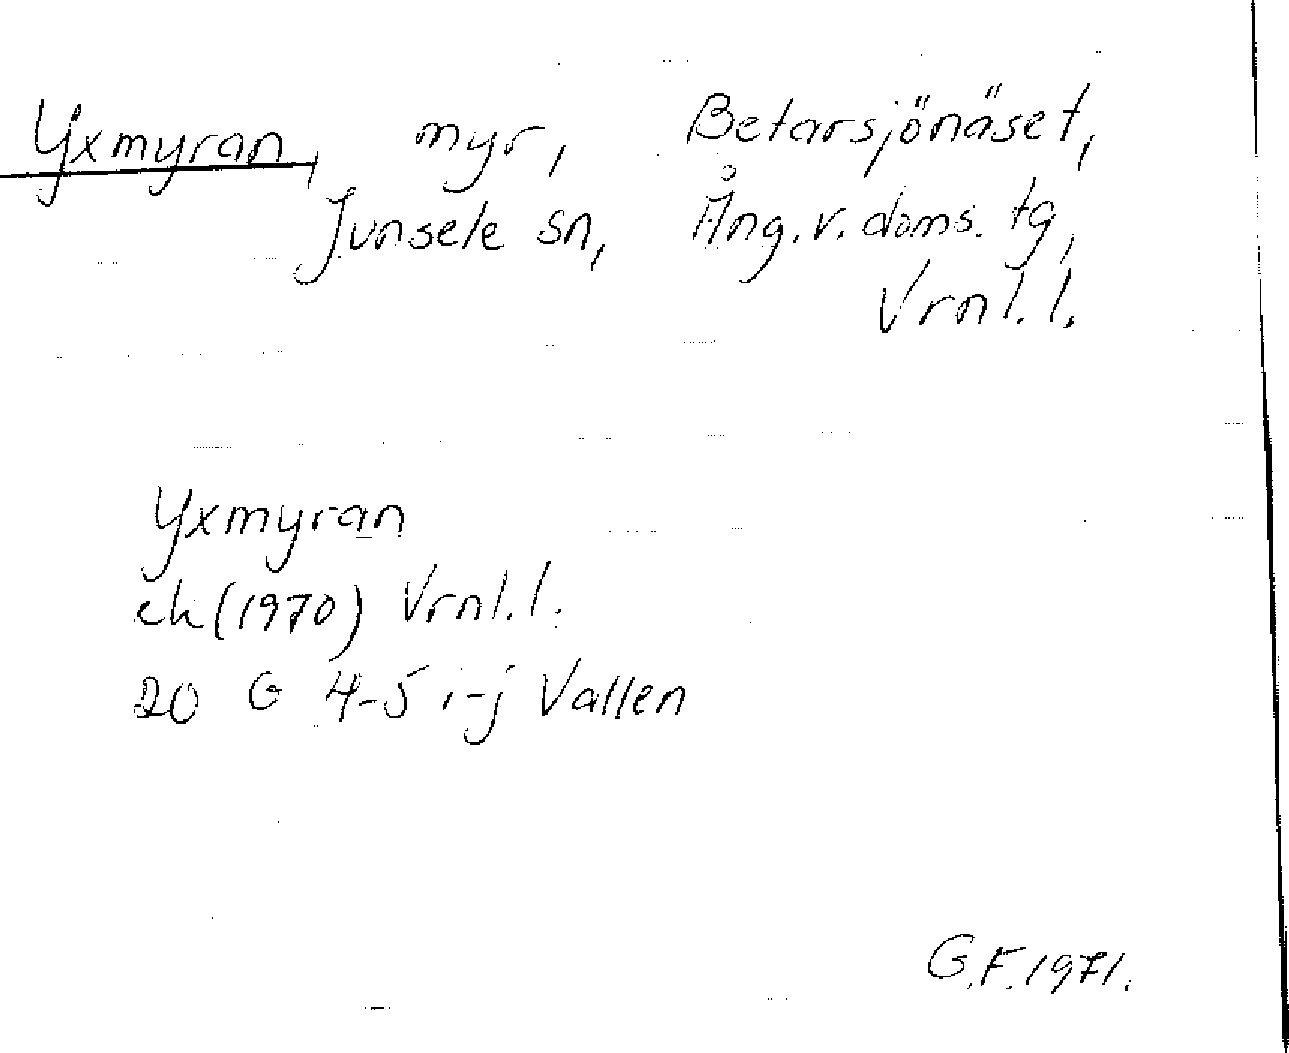 Yxmyran, myr, Betarsjönäset,
Junsele sn, Ång. v. doms. tg,
Vrnl. l.
Yxmyran
ek (1970) Vrnl. l.
20 G 4-5 i-j Vallen
G.F. 1971.